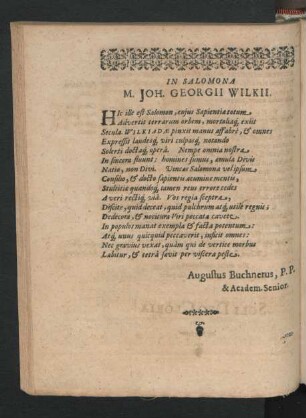 IN SALOMONA
M. JOH. GEORGII WILKII.
HIc ille est Salomon, cujus Sapientia totum
Advertit terrarum orbem, mortaliaq; exiit
Secula. WILKIADÆ pinxit manus affabrè, & omnes
Expressit laudesq; viri culpasq; notando
Solerti doctaq; operâ. Nempe omnia nostra
In sincera fluunt: homines sumus, æmula Divis
Natio, non Divi. Unctas Salomona vel ipsum
Censûm, & docto sapientis acumine mentis,
Stultitiæ quandoq; tamen reus errore
A veri rectiq; viâ. Vos regia sceptra,
Discite, quid deceat, quid pulchrum atq; utile regnis:
Dedecora, & nocitura Viri peccata cavete.
In populos manat exempla & facta potentum:
Atq; unus quicquid peccaverit, inficit omnes:
Nec gravius vexat, quàm qui de vertice morbus
Labitur, & tetrâ sævit per viscera peste.
Augustus Buchnerus, P. P.
& Academ. Senior.